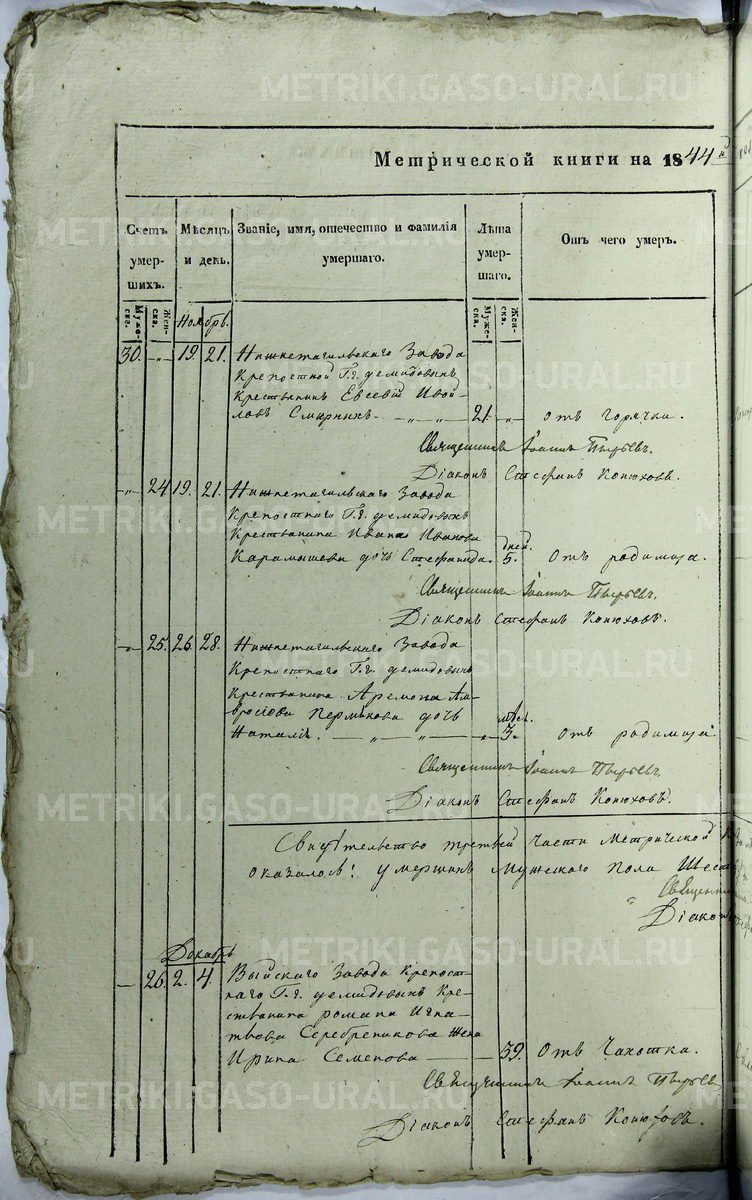 METRIKI.GASO-URAL.RU
Метрической книги на 1844й
Счетъ умер-шихъ.
Мѣсяцъ и день.
Званіе, имя, отечество и фамилія умершаго.
Лѣта умер-шаго.
Отъ чего умеръ.
Муже-ска.
Жен-ска.
Муже-ска.
Жен-ска.
Ноябрь.
30. —„— 19. 21. Нижнетагильскаго Завода
Крепостной Г.г. Демидовыхъ
Крестьянинъ Евсевій Ивой-
ловъ Смирныхъ — „ — „ — 21. —„— отъ горячки.
Священникъ Іоаннъ Пырьевъ.
Діаконъ Стефанъ Конюховъ.
—„— 24 19. 21. Нижнетагильскаго Завода
Крепостнаго Г.г. Демидовыхъ
Крестьянина Ивана Иванова
Карамышева дочь Стефанида. дней 5. Отъ родимца.
Священникъ Іоаннъ Пырьевъ.
Діаконъ Стефанъ Конюховъ.
—„— 25. 26. 28. Нижнетагильскаго Завода
Крепостнаго Г.г. Демидовыхъ
Крестьянина Аремона Ам-
вросіева Пермякова дочь
Наталія. — „ — „ — „ — мѣс. 3. отъ родимца.
Священникъ Іоаннъ Пырьевъ.
Діаконъ Стефанъ Конюховъ.
Свидѣтельство третьей части Метрической
оказалось: умершихъ Мужескаго пола Шест
Священни
Діакон
Декабрь
— 26. 2. 4. Выйскаго Завода Крепост-
наго Г.г. Демидовыхъ Кре-
стьянина Романа Игна-
тьева Серебреникова жена
Ирина Семенова — 39. Отъ Чахотки.
Священникъ Іоаннъ Пырьев
Діаконъ Стефанъ Конюховъ.